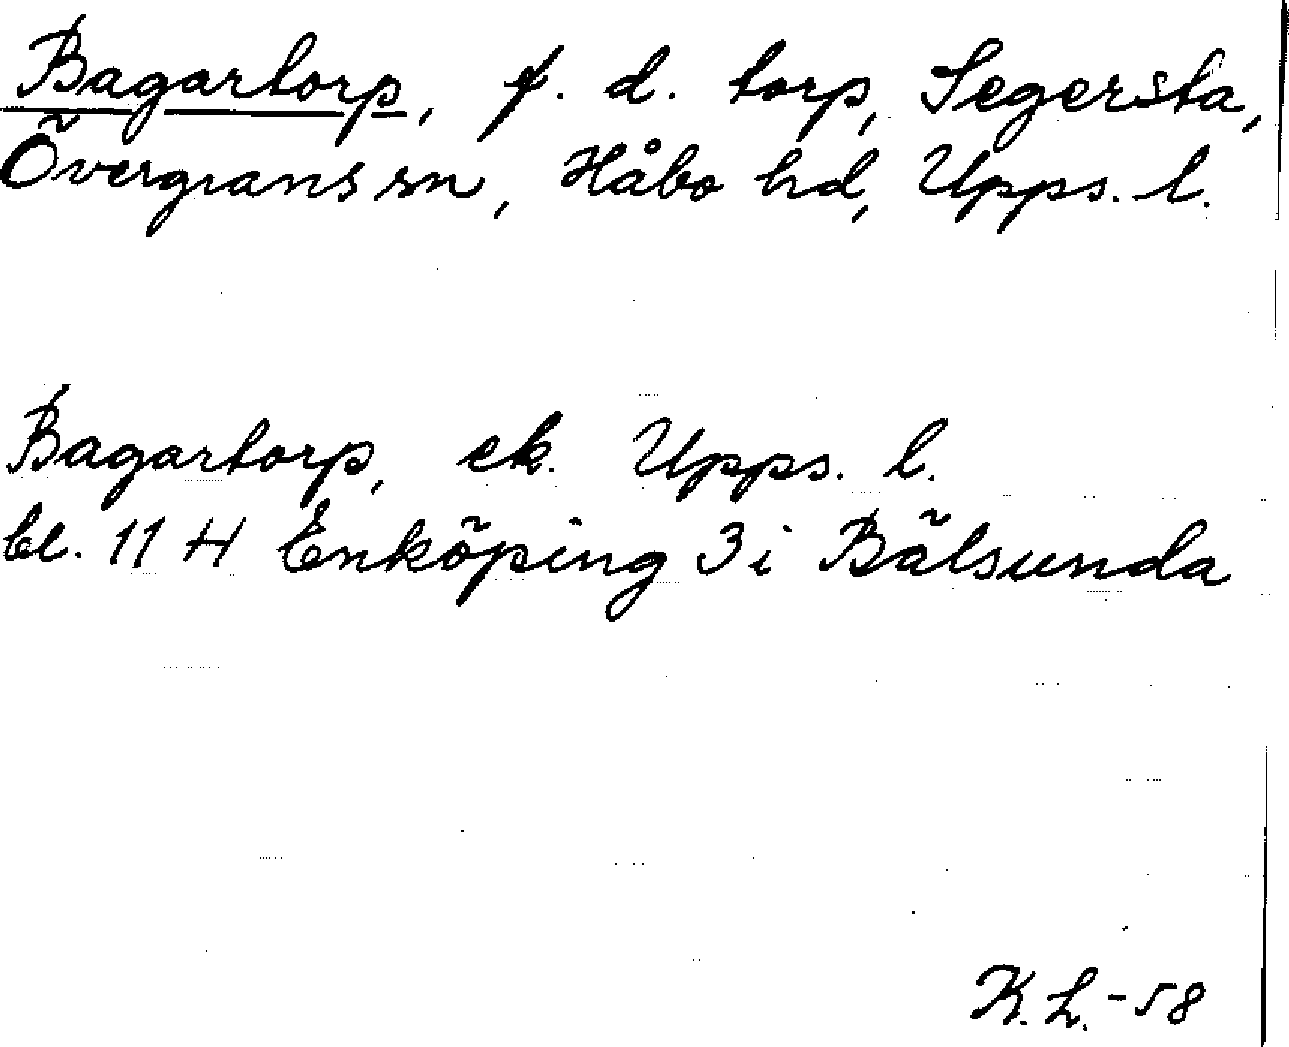 Bagartorp, f. d. torp, Segersta,
Övergrans sn, Håbo hd, Upps. l.
Bagartorp, ek. Upps. l.
bl. 11 H Enköping 3 i Bälsunda
K. L. -58